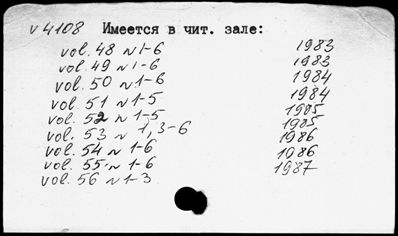 v 4108 Имеется в чит. зале:
vol. 48 N 1-6 1983
vol. 49 N 1-6 1983
vol. 50 N 1-6 1984
vol 51 N 1-5 1984
vol. 52 N 1-5 1985
vol. 53 N 1, 3-6 1985
vol. 54 N 1-6 1986
vol. 55 N 1-6 1086
vol. 56 N 1-3 1987